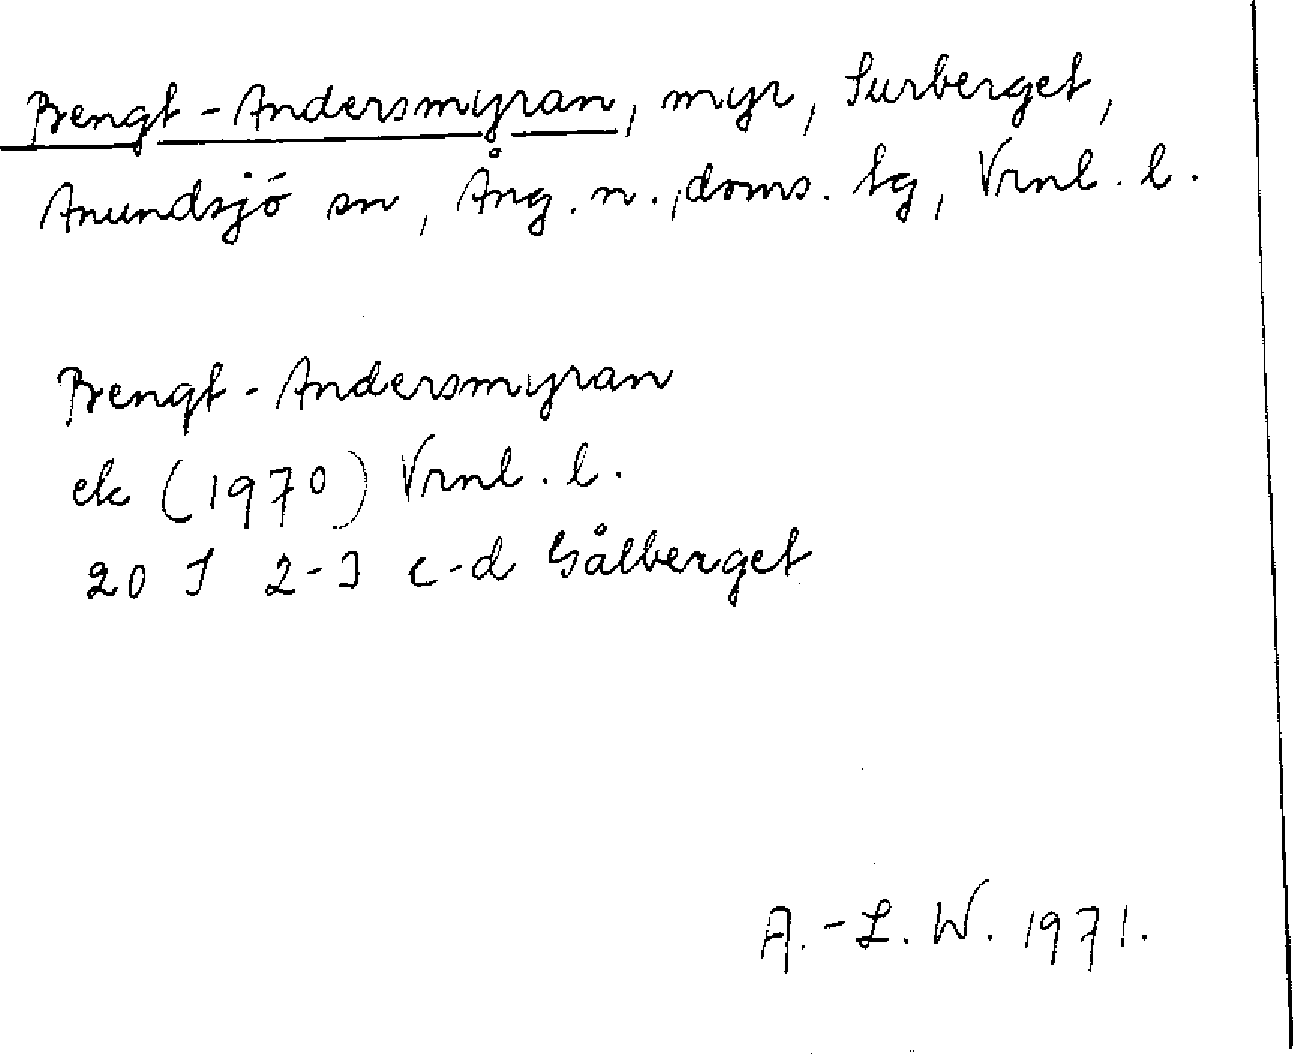 Bengt-Andersmyran, myr, Surberget,
Anundsjö sn, Ång. n., doms. tg, Vrnl. l.
Bengt-Andersmyran
ek (1970) Vrnl. l.
20 J 2-3 c-d Gålberget
A.-L. W. 1971.